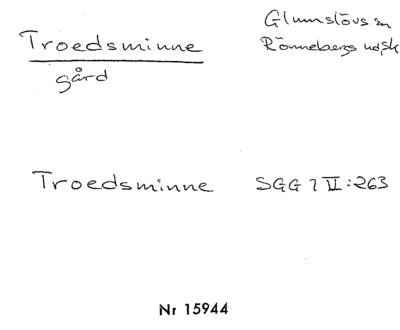 Troedsminne
gård
Glumslövs sn
Rönnebergs hd, Sk
Troedsminne SGG 7 VI:263
Nr 15944